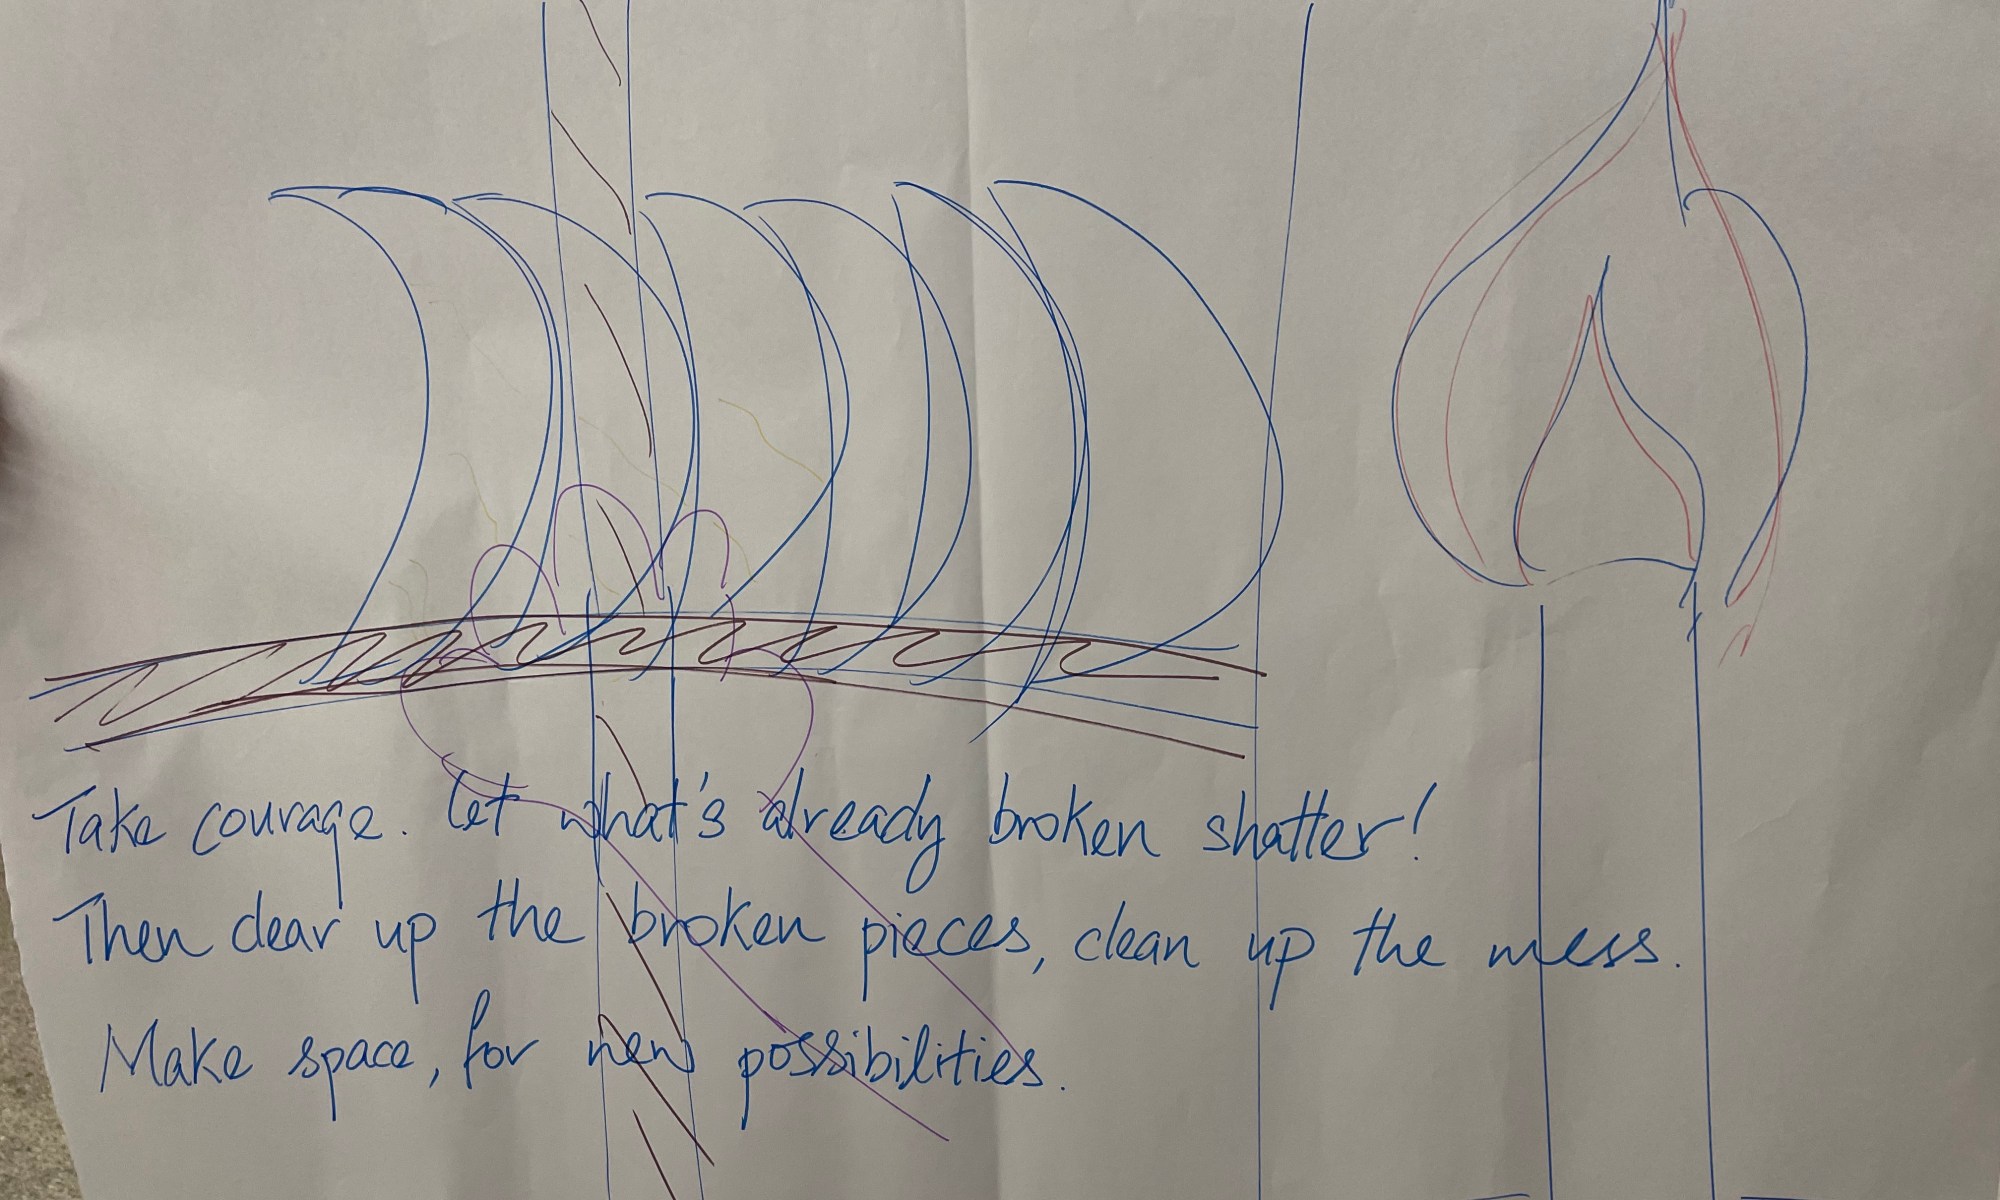 Take courage. Let what's already broken shatter!
Then clear up the broken pieces, clean up the mess.
Make space, for new possibilities.